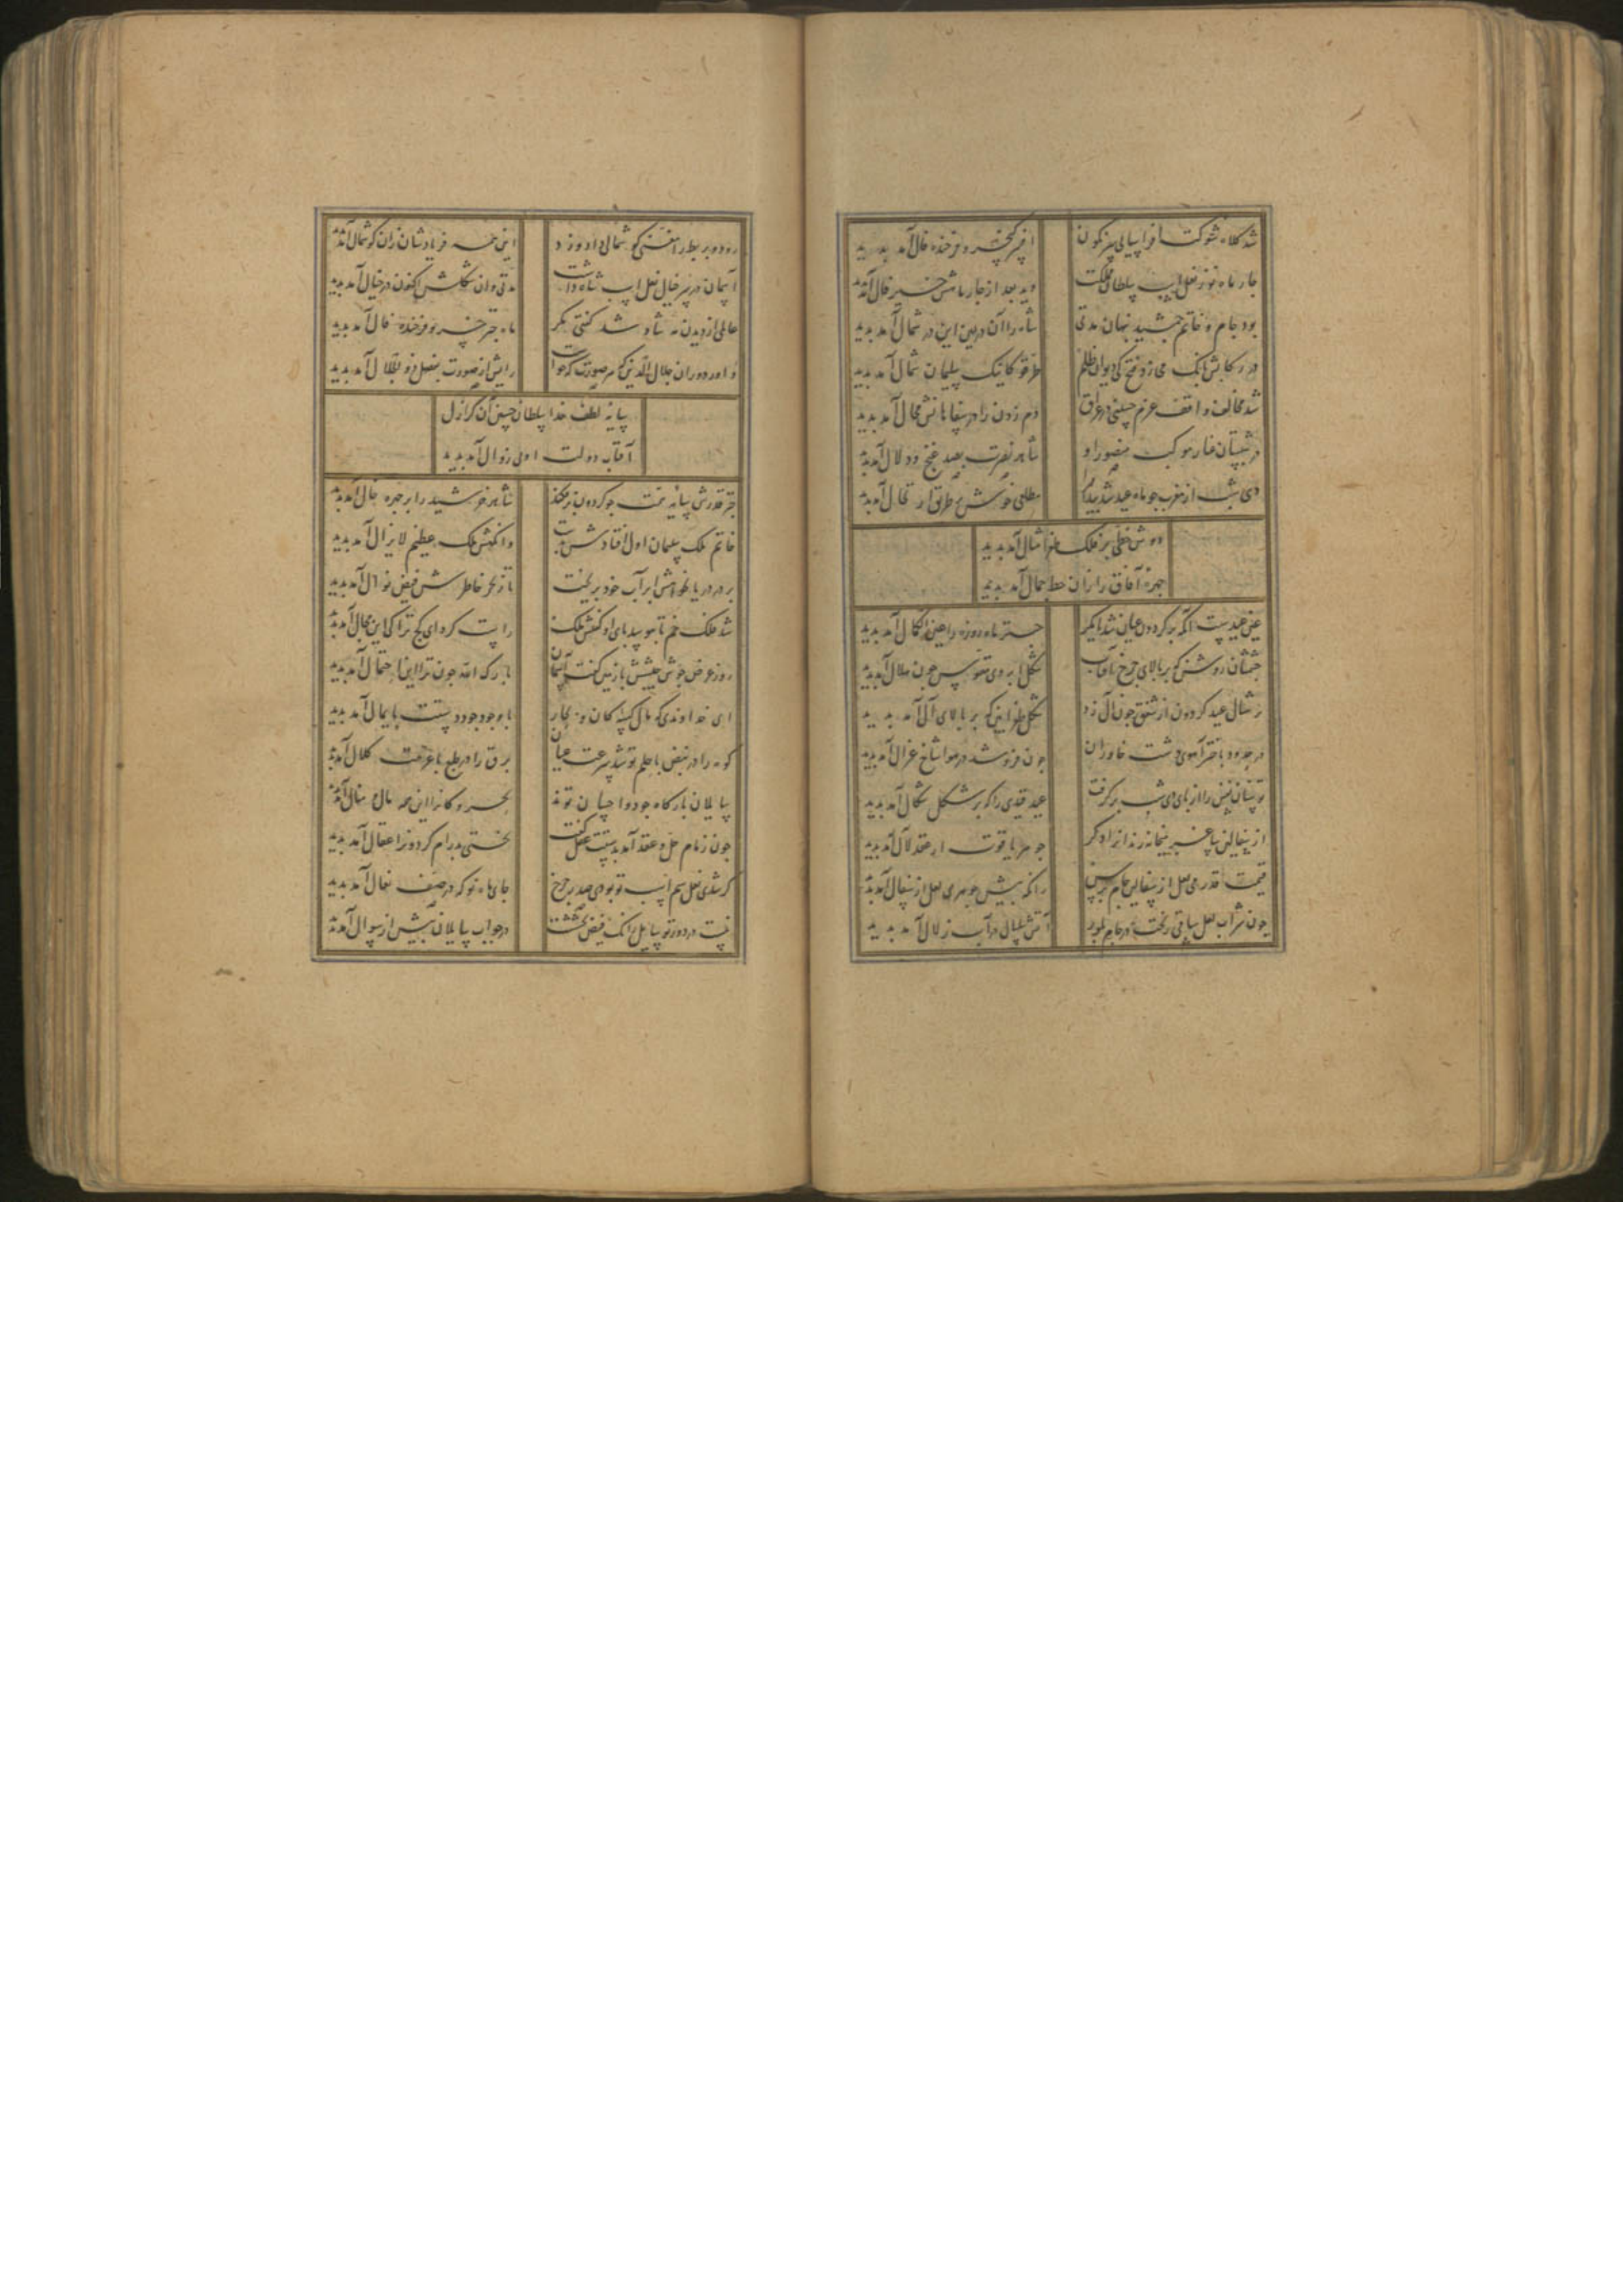 شد کلاه شوکت افراسیابی سرنگون
افسر کیخسرو فرخنده فال آمد پدید
چار ماه نو ز نعل اسب سلطان مملکت
دید بعد از چار مامش خسیر فال آمد
بود جام و خاتم جمشید پنهان مدتی
شاه را آن در یمین این در شمال آمد پدید
در رکابش بانگ می زد فتح کی دیوان ظلم
طرقوا کاینک سلیمان شمال آمد پدید
شد مخالف واقف عزم حسینی در عراق
دم زدن را در سفاهانش مجال آمد پدید
در شبستان غبار موکب منصور او
شاهد نصرت بصد غنج و دلال آمد پدید
دی شب از مغرب چو ماه عید شد پیدا
مطلعی خوش بر طریق ارتجال آمد پدید
دوش خطی بر فلک طغرا مثال آمد پدید
چهره آفاق را زان خط جمال آمد پدید
عین عیدست آنکه بر گردون عیان شد
ماه روزه را کمال آمد پدید
چشمشان روشن که بر بالای چرخ آفتاب
شکل ابروی مقوس چون هلال آمد پدید
ز نشال عید گردون از شفق چون آل زد
شکل طغرا بین که بر بالای آل آمد پدید
در حدود باختر آهوی دشت خاوران
چون فرو شد در هوا شاخ غزال آمد پدید
را از پای دی شب برگرفت
عید قیدی را که بر شکل شکال آمد پدید
از سفالین ساغر میخانه رند آزاد کر
جوهر یاقوت از عقد لآل آمد پدید
قیمت و قدر می لعل از سفالین جام پرس
زانکه پیش جوهری لعل از سفال آمد پدید
چون شراب لعل ساقی ریخت در جام بلور
آتش سیال در آب زلال آمد پدید
رود و بربط را مغنی گوشمالی داد و زد
این همه فریادشان زان گوشمال آمد
آسمان در سر خیال نعل اسب شاه داشت
مدتی وان شکلش اکنون در خیال آمد پدید
عالمی از دیدن مه شاد شد گفتی مگر
ماه چتر خسرو فرخنده فال آمد پدید
داور دوران جلال الدین
رایش از صورت بفضل ذو الجلال آمد پدید
سایه لطف خدا سلطان حسین آن کز ازل
آفتاب دولت او بی زوال آمد پدید
چتر قدرش سایه همت چو گردون برفکند
شاهد خورشید را بر چهره خال آمد پدید
خاتم ملک سلیمان اول افتادش بدست
وانگهش ملک عظیم لایزال آمد پدید
بر در دریا بخواهش ابر آب خود بریخت
تا ز بحر خاطرش فیض نوال آمد پدید
شد فلک خم تا ببوسد پای او گفتش ملک
راست کرد ای کج ترا کی این مجال آمد پدید
روز عرض جوش جیشش با زمین گفت آسمان
بارک الله چون ترا این احتمال آمد پدید
ای خداوندی که مال کیسه کان و بحار
با وجود جود دستت پایمال آمد پدید
کوه را در نبض با حلم تو شد سرعت عیان
برق را در طبع با عزمت کلال آمد پدید
سایلان بارگاه جود و احسان تواند
بحر و کان را این همه مال و منال آمد
چون زمام حل و عقد آمد بدستت عقل گفت
بختی بدرام گردون را عقال آمد پدید
گر شدی نعل سم اسب تو بودی صدر چرخ
جای ماه نو که در صف نعال آمد پدید
نیست در دور تو سایل زانک فیض بخششت
در جواب سایلان پیش از سوال آمد